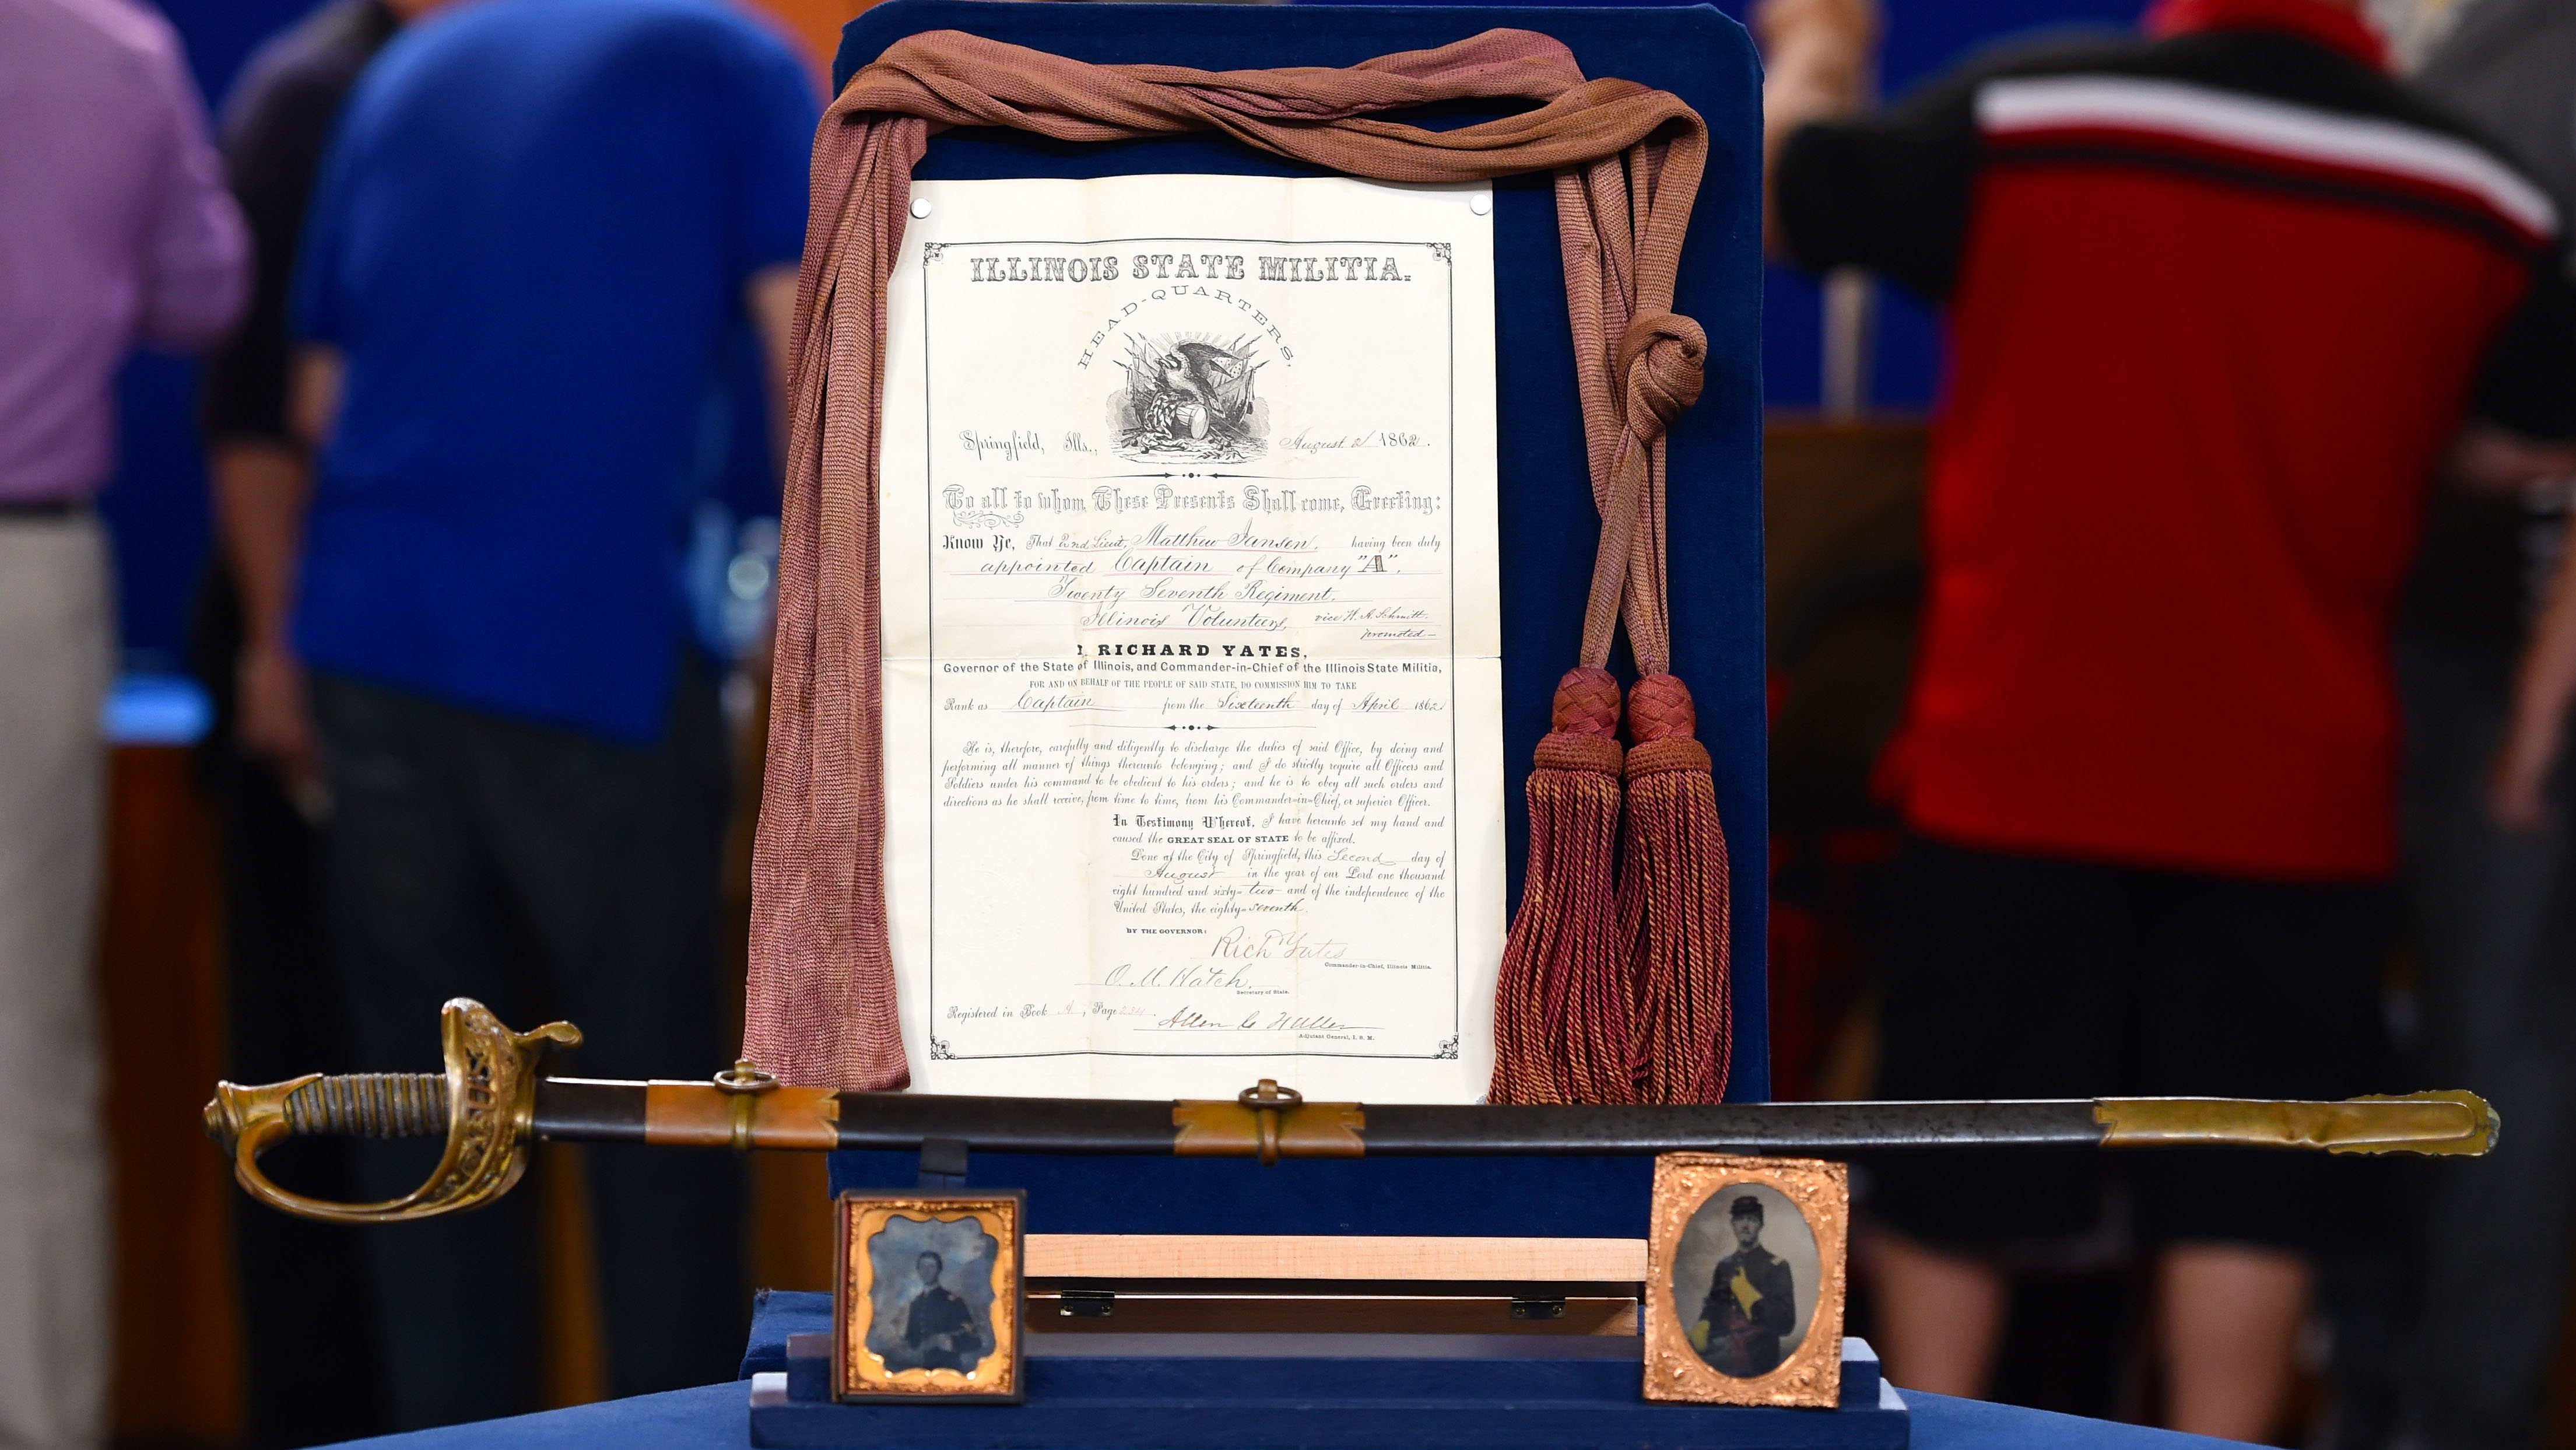 ILLINOIS STATE MILITIA.
HEAD-QUARTERS,
Springfield, Ills., August 2 1862.
To all to whom These Presents Shall come, Greeting:
Know Ye, That 2nd Lieut. Matthew Jansen, having been duly
appointed Captain of Company "A",
Twenty Seventh Regiment,
Illinois Volunteers, vice H. A. Schmitt
promoted—
I, RICHARD YATES,
Governor of the State of Illinois, and Commander-in-Chief of the Illinois State Militia,
FOR AND ON BEHALF OF THE PEOPLE OF SAID STATE, DO COMMISSION HIM TO TAKE
Rank as Captain from the Sixteenth day of April 1862.
He is, therefore, carefully and diligently to discharge the duties of said Office, by doing and
performing all manner of things thereunto belonging; and I do strictly require all Officers and
Soldiers under his command to be obedient to his orders; and he is to obey all such orders and
directions as he shall receive, from time to time, from his Commander-in-Chief, or superior Officer.
In Testimony Whereof, I have hereunto set my hand and
caused the GREAT SEAL OF STATE to be affixed.
Done at the City of Springfield, this Second day of
August in the year of our Lord one thousand
eight hundred and sixty-two and of the independence of the
United States, the eighty-seventh.
BY THE GOVERNOR:
Richd Yates
Commander-in-Chief, Illinois Militia.
O. M. Hatch.
Secretary of State.
Registered in Book A, Page 234.
Allen C Fuller
Adjutant General, I. S. M.
US